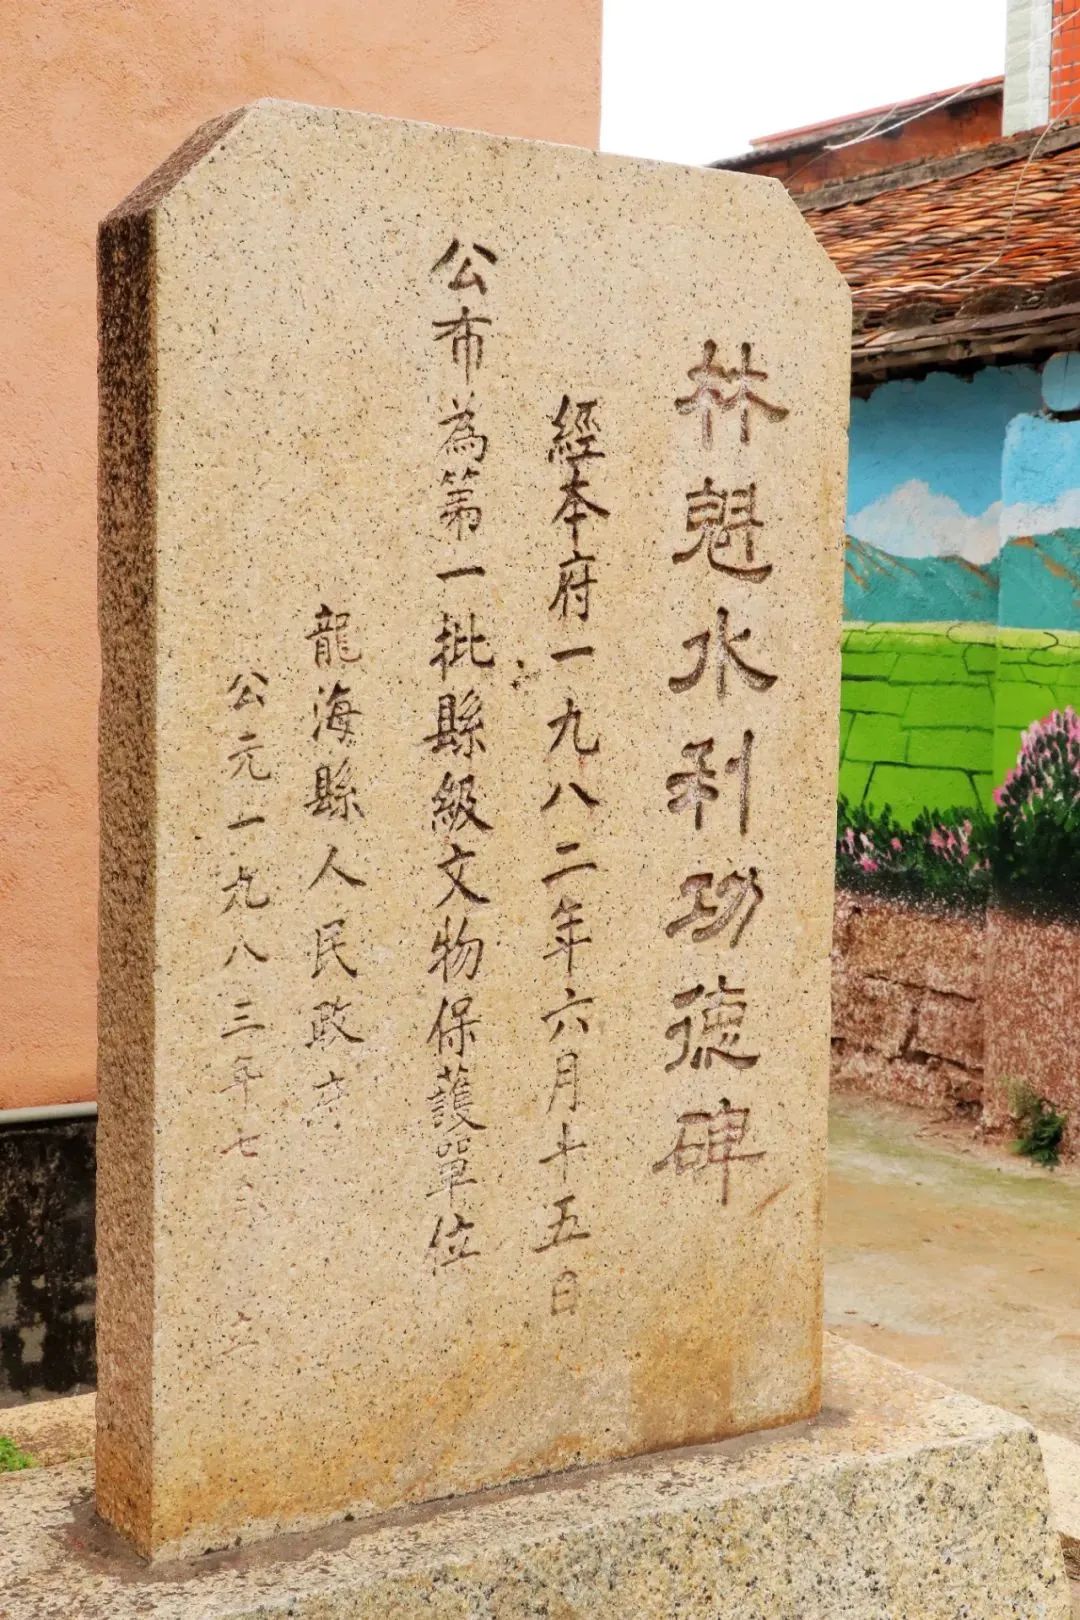 林魁水利功德碑
經本府一九八二年六月十五日
公布為第一批縣級文物保護單位
龍海縣人民政府
公元一九八三年七月 立